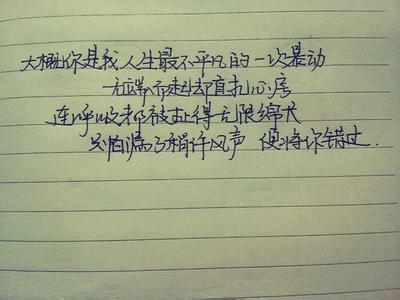 大概你是我人生最不平凡的一次悸动
无端而起却直扎心房
连呼吸都被扯得无限绵长
只怕漏了稍许风声 便将你错过.